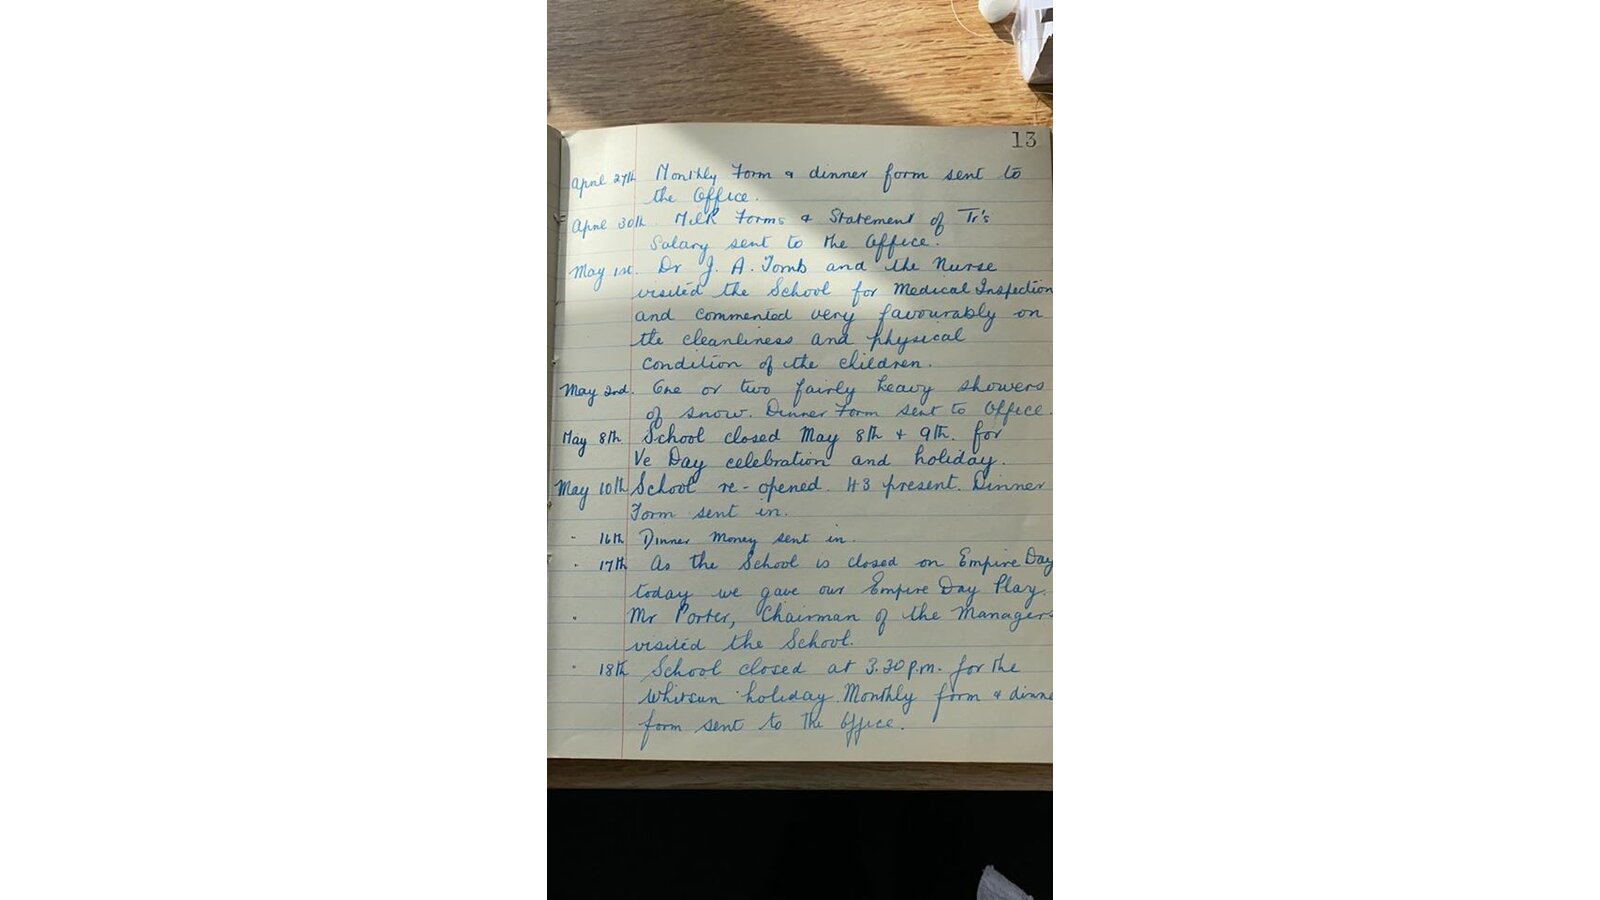 13
April 27th Monthly Form & dinner form sent to
the Office.
April 30th. Milk Forms & Statement of Tr's
Salary sent to the Office.
May 1st. Dr J. A. Tomb and the Nurse
visited the School for Medical Inspection
and commented very favourably on
the cleanliness and physical
condition of the children.
May 2nd. One or two fairly heavy showers
of snow. Dinner Form sent to Office.
May 8th. School closed May 8th & 9th. for
Ve Day celebration and holiday.
May 10th School re-opened. 43 present. Dinner
Form sent in.
" 16th Dinner Money sent in.
" 17th As the School is closed on Empire Day
today we gave our Empire Day Play.
" Mr Porter, Chairman of the Managers
visited the School.
" 18th School closed at 3.30 p.m. for the
Whitsun holiday. Monthly form & dinne
form sent to the Office.